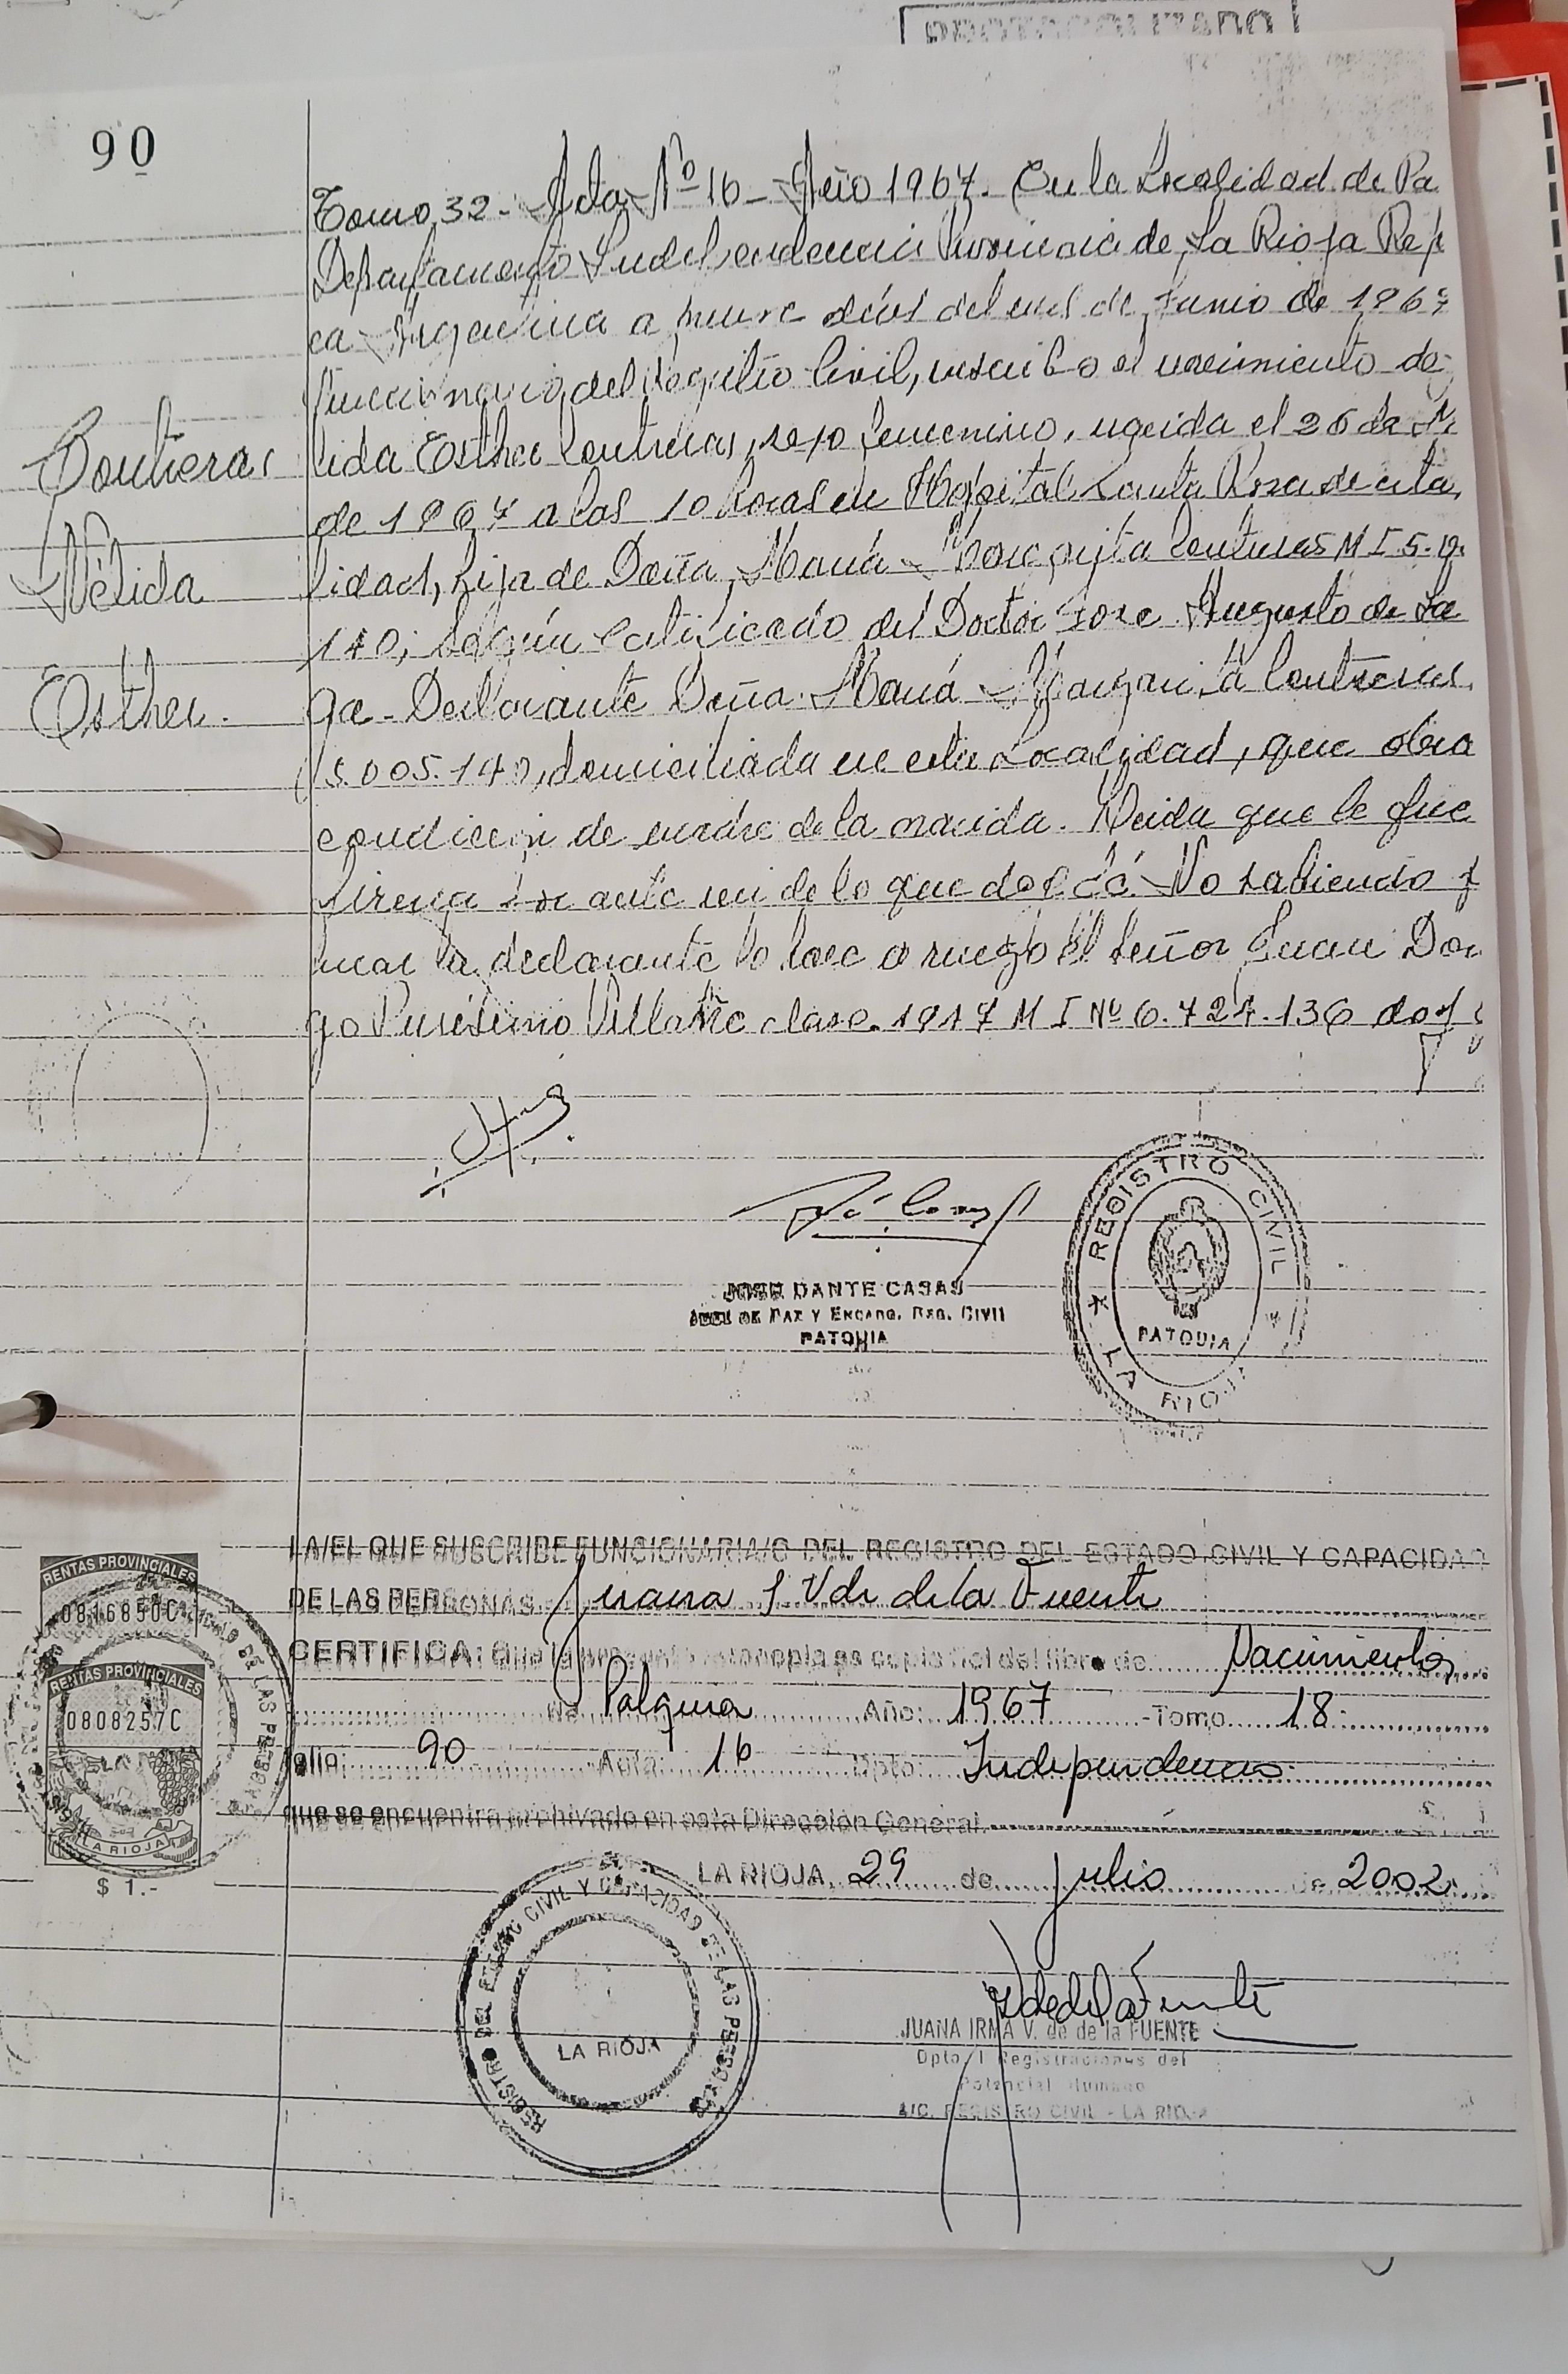 PROTOCOLIZADO
90
Tomo 32 - Acta Nº 16 - Año 1967. En la Localidad de Pa
Departamento Independencia Provincia de La Rioja Rep
ca Argentina a nueve días del mes de Junio de 1967
funcionario del Registro Civil, inscribo el nacimiento de
Contreras
lida Esther Contreras, sexo femenino, nacida el 26 de
de 1967 a las 10 horas en Hospital Santa Rosa de esta
Nélida
lidad, hija de Doña María Margarita Contreras M I 5.0
140, según certificado del Doctor Jose Augusto de La
Esther.
ga - Declarante Doña María Margarita Contreras
5.005.140, domiciliada en esta Localidad, que obra
condición de madre de la nacida. Leida que le fue
firma por ante mi de lo que doy fé. No sabiendo f
mar la declarante lo hace a ruego el señor Juan Dom
go Purísimo Villafañe clase 1917 M I Nº 6.724.136 doy f
JOSE DANTE CASAS
JUEZ DE PAZ Y ENCARG. REG. CIVIL
PATQUIA
REGISTRO CIVIL
PATQUIA
LA RIOJA
LA/EL QUE SUSCRIBE FUNCIONARIA/O DEL REGISTRO DEL ESTADO CIVIL Y CAPACIDAD
DE LAS PERSONAS Juana I V de de la Fuente
CERTIFICA: Que la presente fotocopia es copia fiel del libro de Nacimientos
de Patquia Año: 1967 -Tomo 18
folio: 90 Acta: 16 Dpto: Independencia
que se encuentra archivado en esta Dirección General
LA RIOJA, 29 de julio de 2002
RENTAS PROVINCIALES
0816850C
RENTAS PROVINCIALES
0808257C
LA RIOJA
$ 1.-
REGISTRO DEL ESTADO CIVIL Y CAPACIDAD DE LAS PERSONAS
LA RIOJA
V de de la Fuente
JUANA IRMA V. de de la FUENTE
Dpto. Registraciones del
Potencial Humano
A/C. REGISTRO CIVIL - LA RIOJA